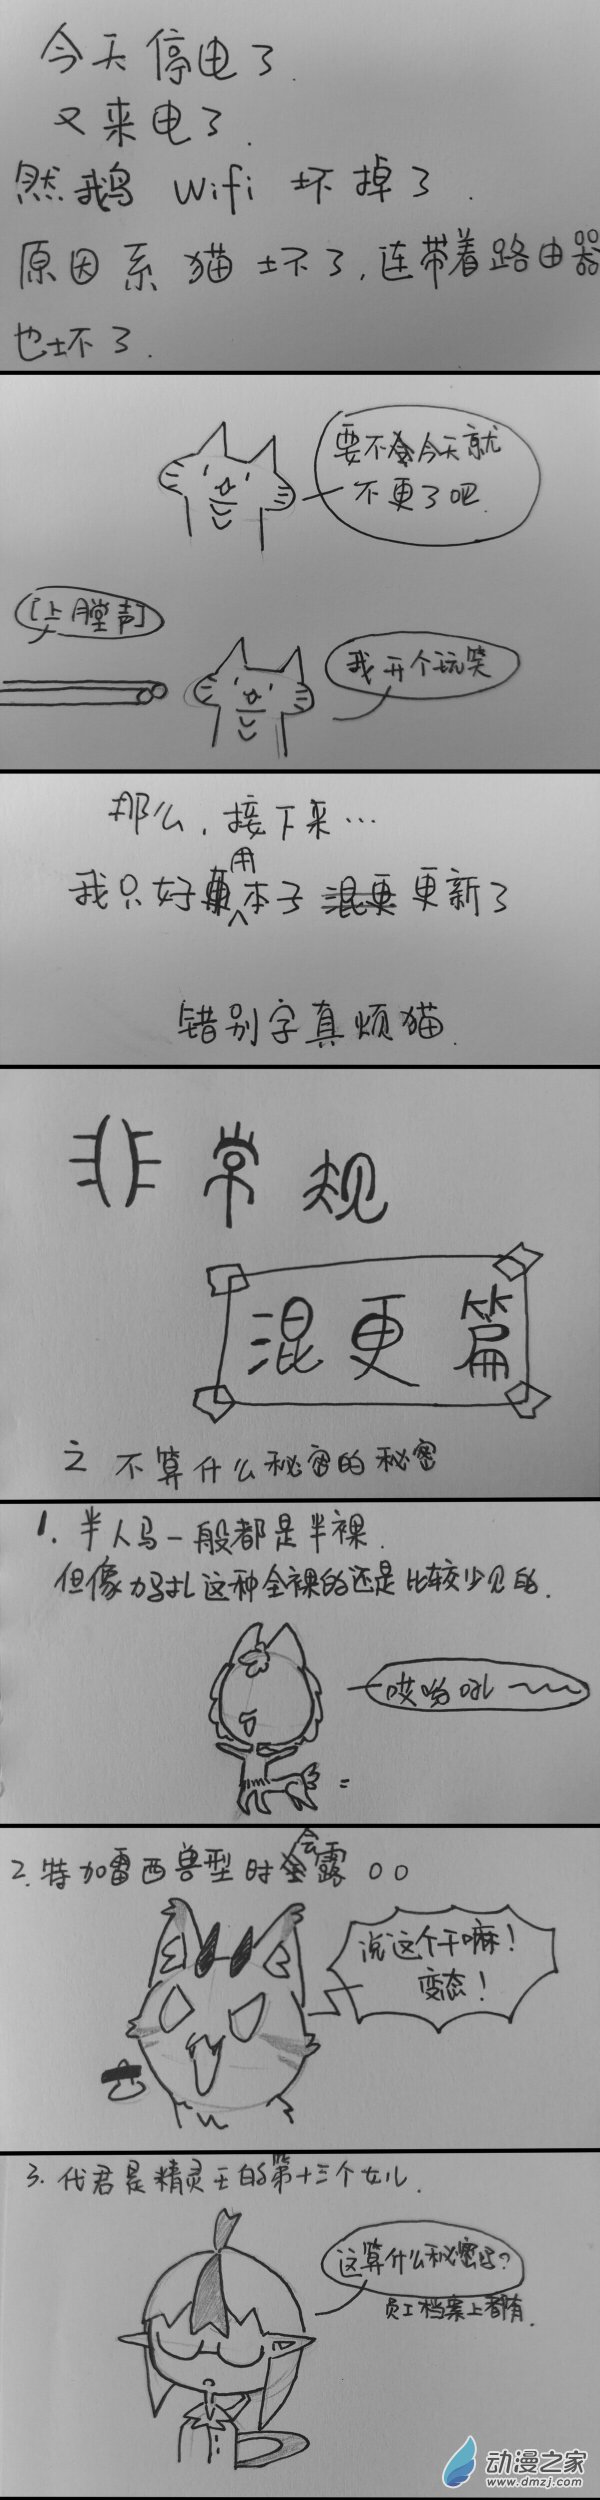 今天停电了.
又来电了.
然鹅 wifi 坏掉了.
原因系猫坏了,连带着路由器
也坏了.
要不今天就
不更了吧.
[上膛声]
我开个玩笑
那么,接下来…
我只好用本子混更更新了
错别字真烦猫.
非常规
混更篇
之不算什么秘密的秘密
1. 半人马一般都是半裸.
但像加扎这种全裸的还是比较少见的.
哎哟吼~
2. 特加雷西兽型时会露○○
说这个干嘛!
变态!
3. 代君是精灵王的第十三个女儿.
这算什么秘密呀?
员工档案上都有.
动漫之家
www.dmzj.com